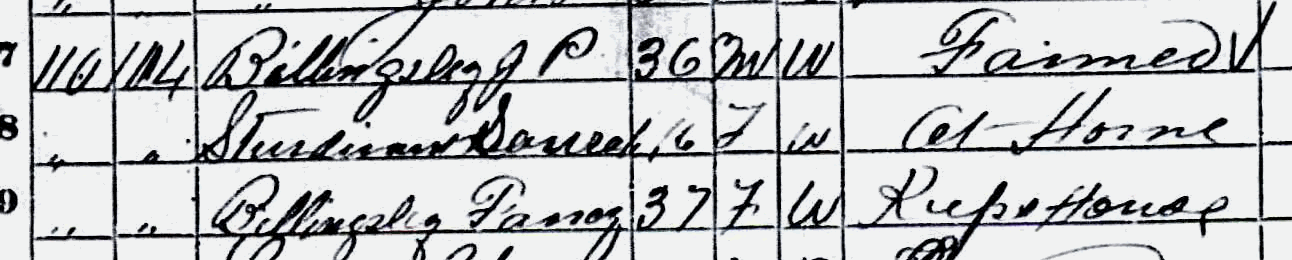 7 110 104 Billingsley J P 36 M W Farmer
8 " " 16 F W At Home
9 " " Billingsley Fanny 37 F W Keeps House